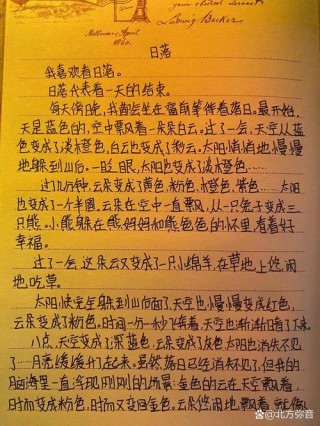 your obedient servant
Ludwig Becker
Melbourne, April
1860.
日落
我喜欢看日落。
日落代表着一天的结束。
每天傍晚，我都会坐在窗前等待着落日。最开始，
天是蓝色的，空中飘着一朵朵白云。过了一会，天空从蓝
色变成了淡橙色，白云也变成了粉云。太阳悄悄地慢慢
地躲到山后。一眨眼，太阳也变成了淡橙色……
过了几分钟，云朵变成了黄色、粉色、橙色、紫色……太阳
也变成了一个半圆，云朵在空中一直飘，从一只兔子变成三
只熊。小熊躲在熊妈妈和熊爸爸的怀里，看着好
幸福。
过了一会，这朵云又变成了一只小绵羊，在草地上悠闲
地吃草。
太阳快完全躲到山后面了，天空也慢慢变成红色，
云朵变成了粉色。时间一分一秒飞奔着，天空也渐渐暗了下来。
八点，天空变成了深蓝色，云朵变成了灰色，太阳也消失不见
了……月亮缓缓升了起来。虽然落日已经消失不见了，但我的
脑海里一直浮现刚刚的场景：金色的云在天空飘着，
时而变成粉色，时而又变回金色。云朵悠闲地飘着，就像
@北方弥音